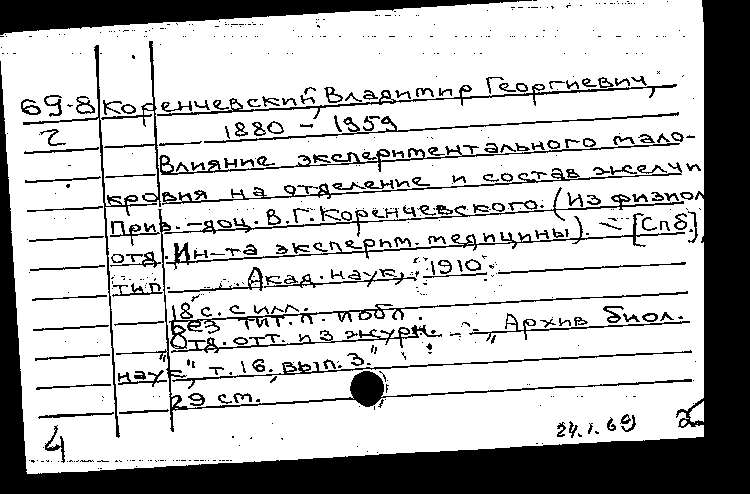 69-8 Коренчевский, Владимир Георгиевич,
2 1880 - 1959
Влияние экспериментального мало-
кровия на отделение и состав желчи
Прив.-доц. В.Г. Коренчевского. (Из физиол
отд. Ин-та эксперим. медицины). - [Спб],
тип. Акад. наук, 1910.
18 с. с илл.
Без тит. л. и обл.
Отд. отт. из журн. - „Архив биол.
наук", т. 16, вып. 3."
29 см.
4 24.1.69